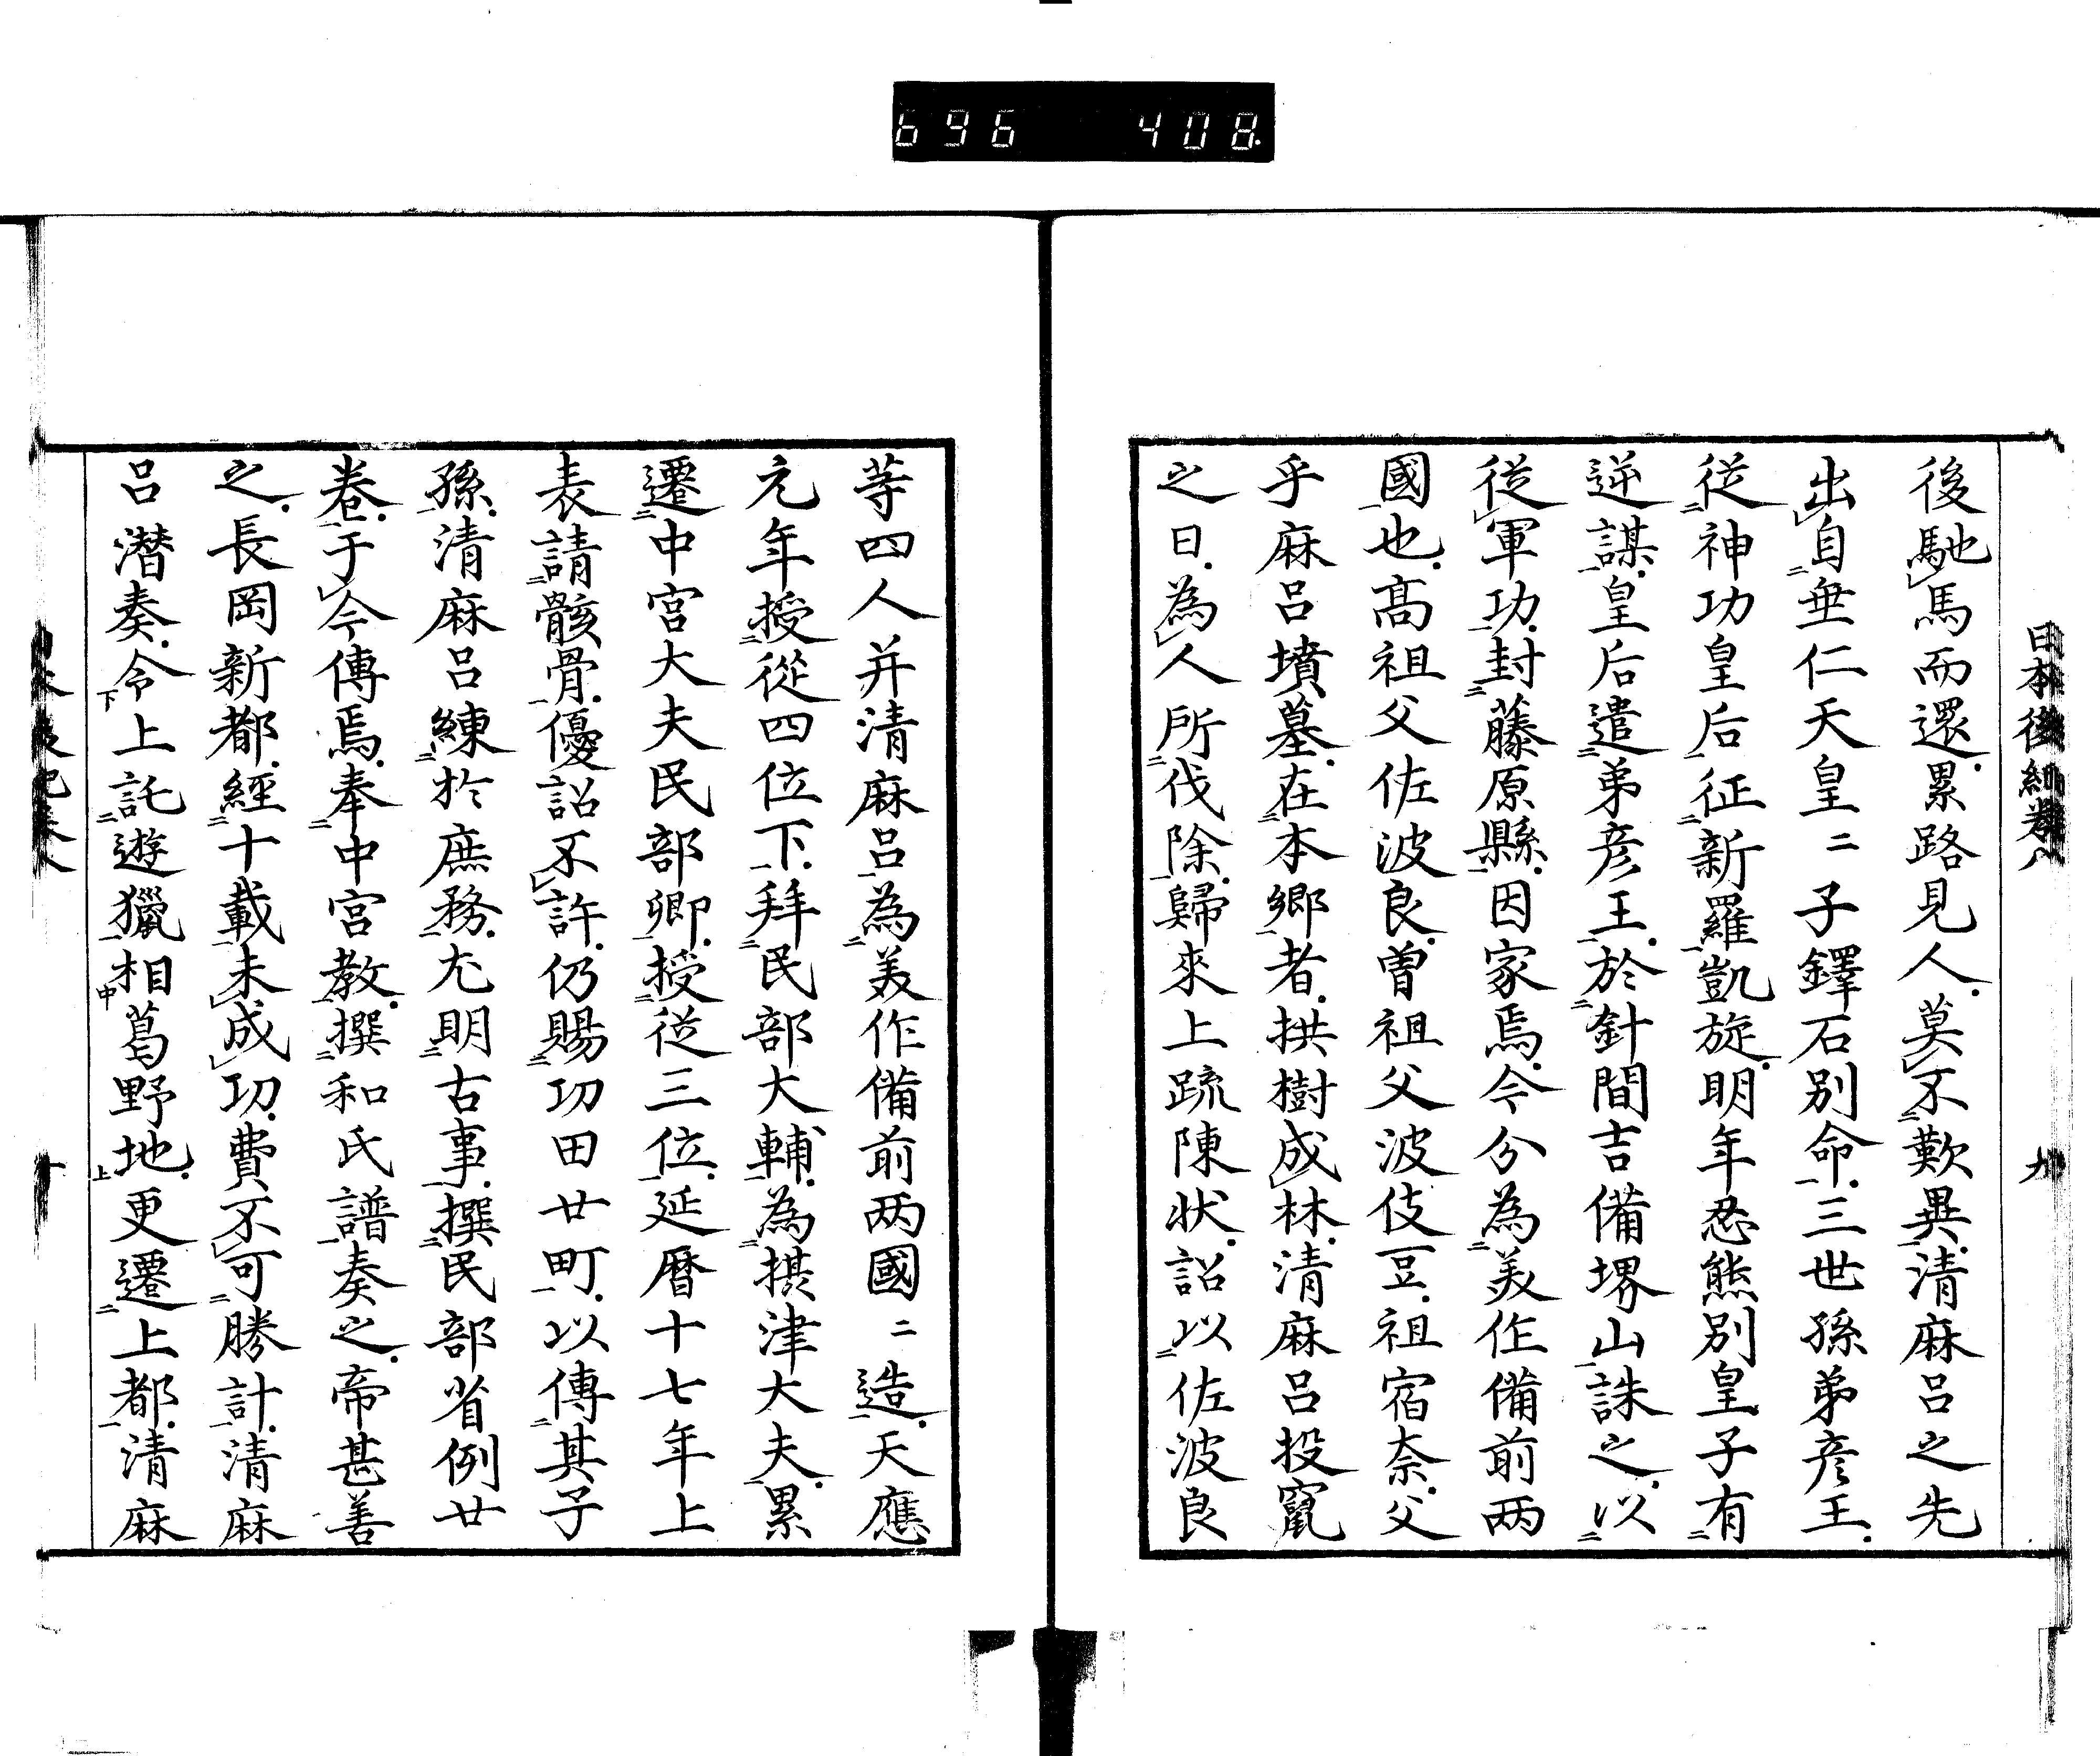 696 408
日本後紀卷八
九
後馳馬而還累路見人莫不歎異清麻呂之先
出自垂仁天皇二子鐸石別命三世孫弟彦王
從神功皇后征新羅凱旋明年忍熊別皇子有
逆謀皇后遣弟彦王於針間吉備堺山誅之以
從軍功封藤原縣因家焉今分為美作備前両
國也高祖父佐波良曽祖父波伎豆祖宿奈父
乎麻呂墳墓在本郷者拱樹成林清麻呂投竄
之日為人所伐除歸來上疏陳状詔以佐波良
等四人并清麻呂為美作備前両國二造天應
元年授從四位下拜民部大輔為摂津大夫累
遷中宮大夫民部卿授従三位延暦十七年上
表請骸骨優詔不許仍賜功田廿町以傳其子
孫清麻呂練於庶務尤明古事撰民部省例廿
卷于今傳焉奉中宮教撰和氏譜奏之帝甚善
之長岡新都經十載未成功費不可勝計清麻
呂潜奏令上託遊獵相葛野地更遷上都清麻